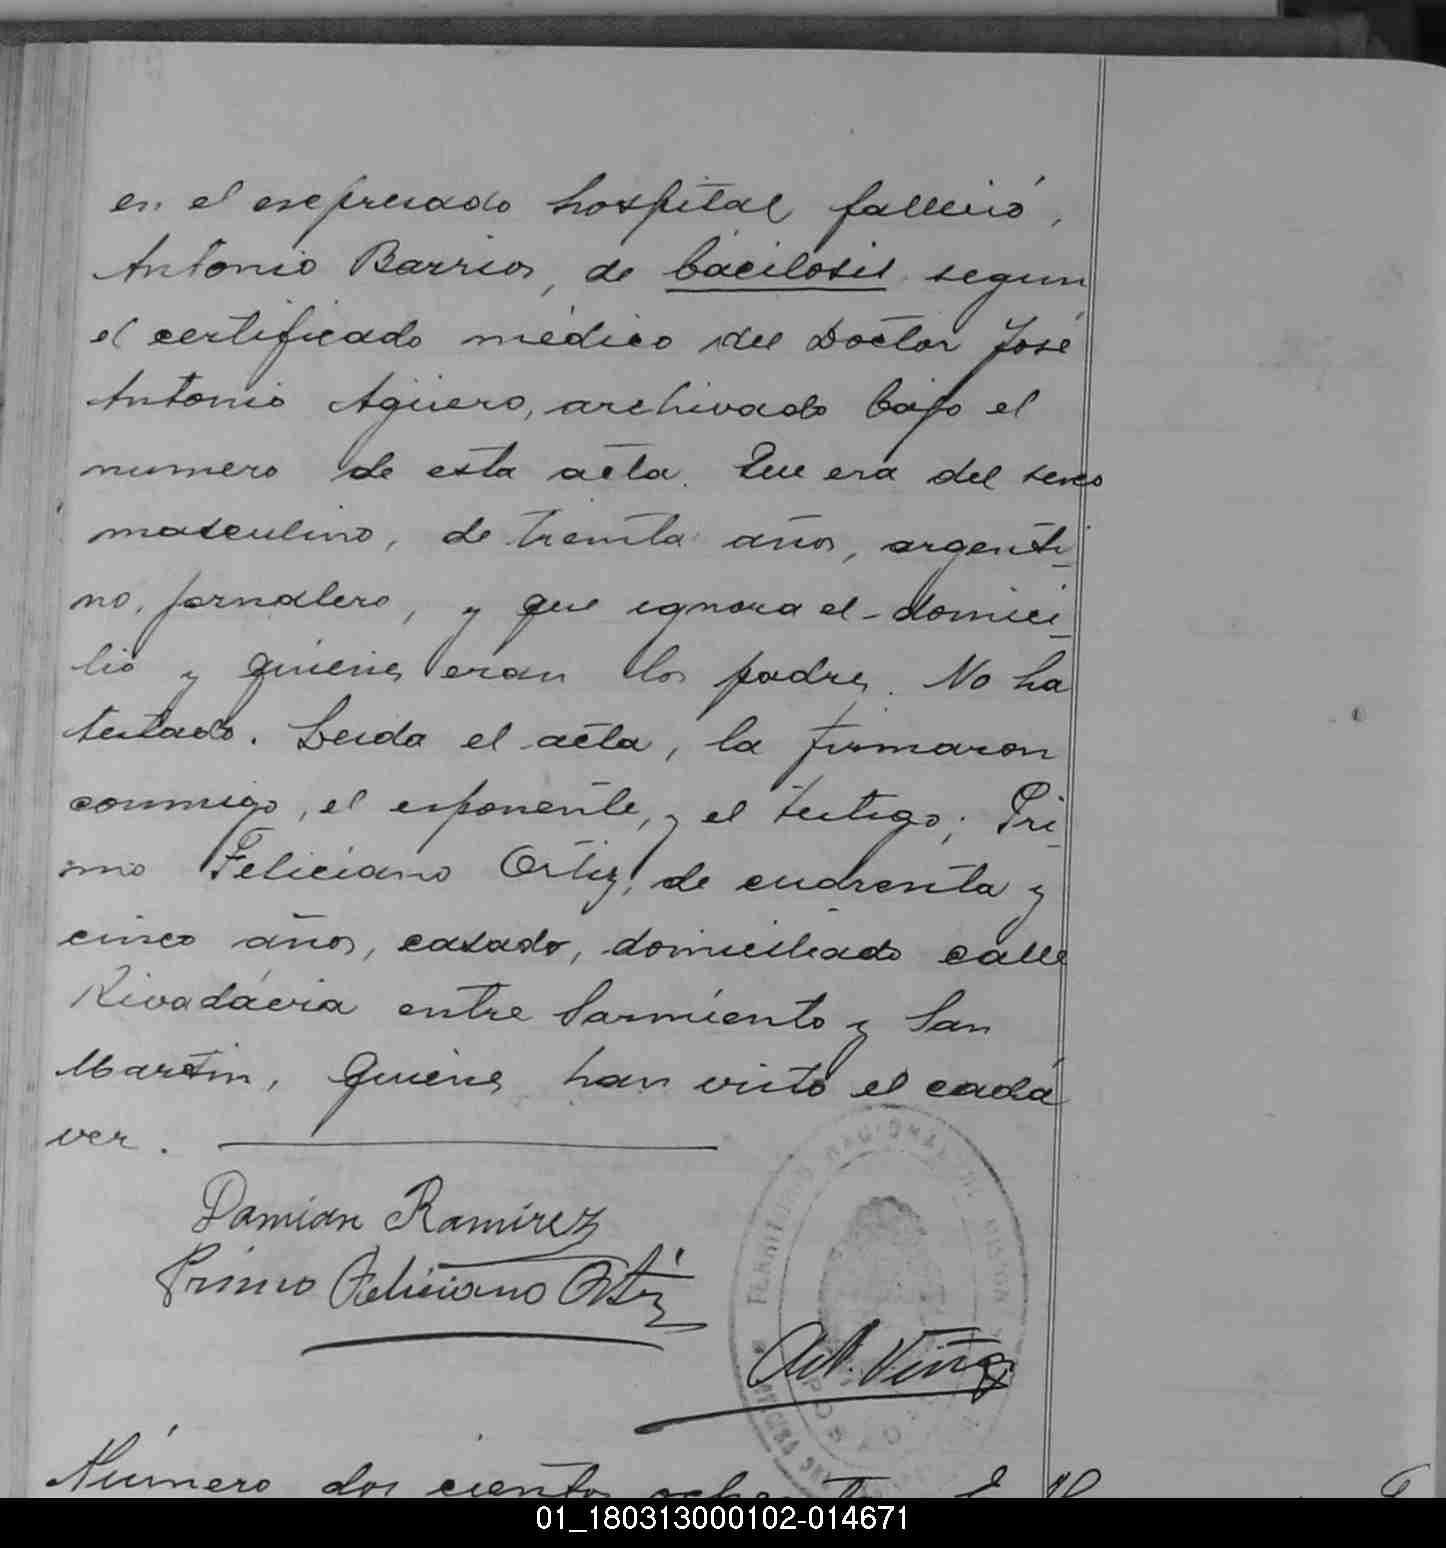 en el expresado hospital falleció,
Antonio Barrios, de bacilosis segun
el certificado médico del Doctor José
Antonio Agüero, archivado bajo el
numero de esta acta. Que era del sexo
masculino, de treinta años, argenti-
no, jornalero, y que ignora el domici-
lio y quienes eran los padres. No ha
testado. Leida el acta, la firmaron
conmigo, el exponente, y el testigo; Pri-
mo Feliciano Ortiz, de cuarenta y
cinco años, casado, domiciliado calle
Rivadávia entre Sarmiento y San
Martin, quienes han visto el cadá
ver.
Damian Ramirez
Primo Feliciano Ortiz
TERRITORIO NACIONAL DE MISIONES
POSADAS
Número dos cientos
01_180313000102-014671